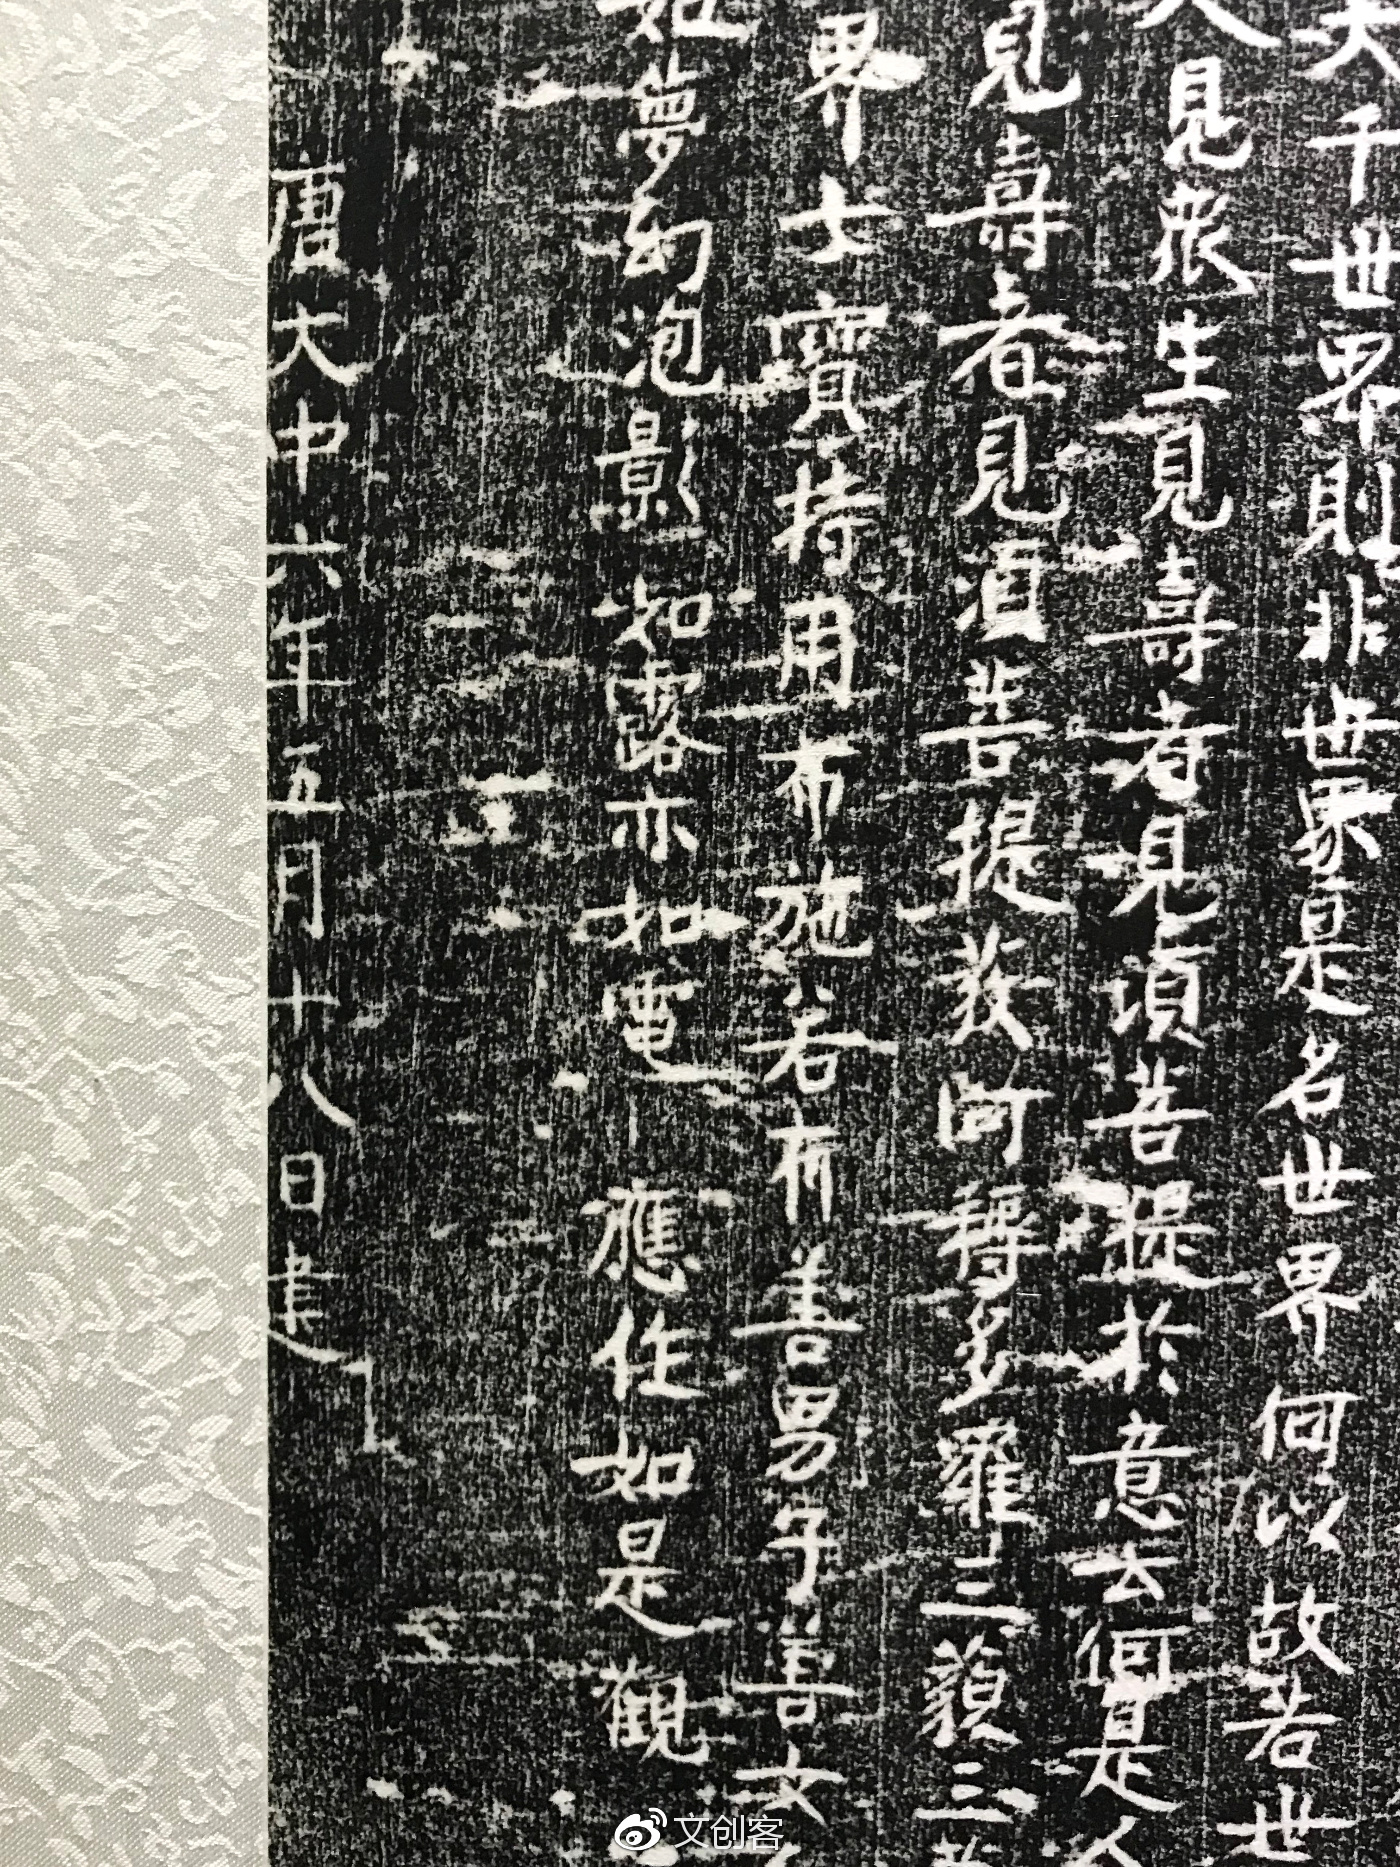 大千世界則非世界是名世界何以故若世
人見衆生見壽者見須菩提於意云何是人
見壽者見須菩提發阿耨多羅三藐三菩
界七寶持用布施若有善男子善女
如夢幻泡影如露亦如電應作如是觀
唐大中六年五月十八日建
文创客